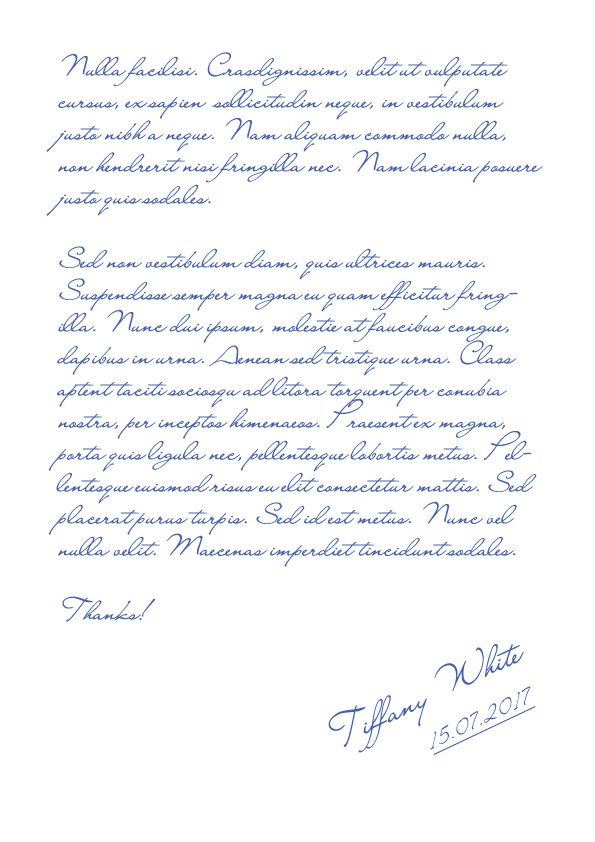 Nulla facilisi. Cras dignissim, velit ut vulputate
cursus, ex sapien sollicitudin neque, in vestibulum
justo nibh a neque. Nam aliquam commodo nulla,
non hendrerit nisi fringilla nec. Nam lacinia posuere
justo quis sodales.
Sed non vestibulum diam, quis ultrices mauris.
Suspendisse semper magna eu quam efficitur fring-
illa. Nunc dui ipsum, molestie at faucibus congue,
dapibus in urna. Aenean sed tristique urna. Class
aptent taciti sociosqu ad litora torquent per conubia
nostra, per inceptos himenaeos. Praesent ex magna,
porta quis ligula nec, pellentesque lobortis metus. Pel-
lentesque euismod risus eu elit consectetur mattis. Sed
placerat purus turpis. Sed id est metus. Nunc vel
nulla velit. Maecenas imperdiet tincidunt sodales.
Thanks!
Tiffany White
15.07.2017